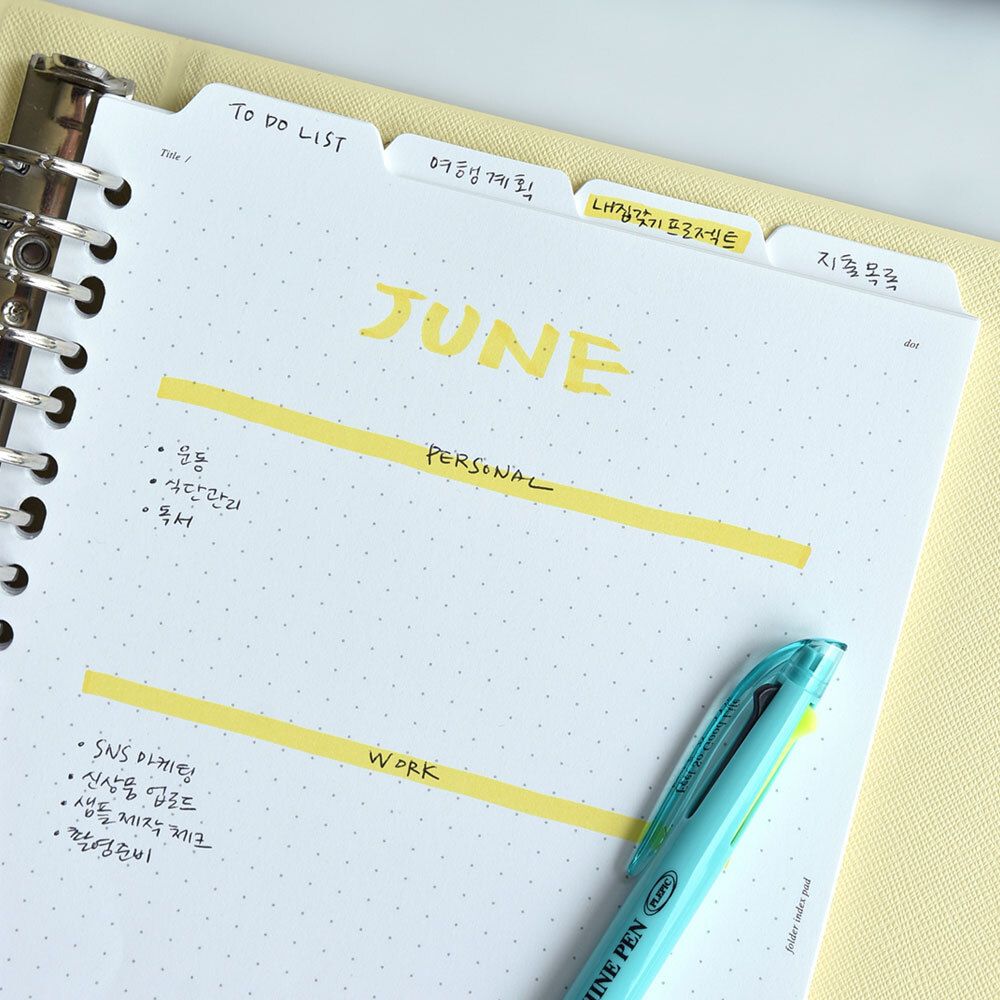 TO DO LIST
여행계획
내집갖기프로젝트
지출목록
Title /
dot
JUNE
PERSONAL
• 운동
• 식단관리
• 독서
WORK
• SNS 마케팅
• 신상품 업로드
• 샘플제작체크
• 촬영준비
PLEPIC
HINE PEN
folder index pad